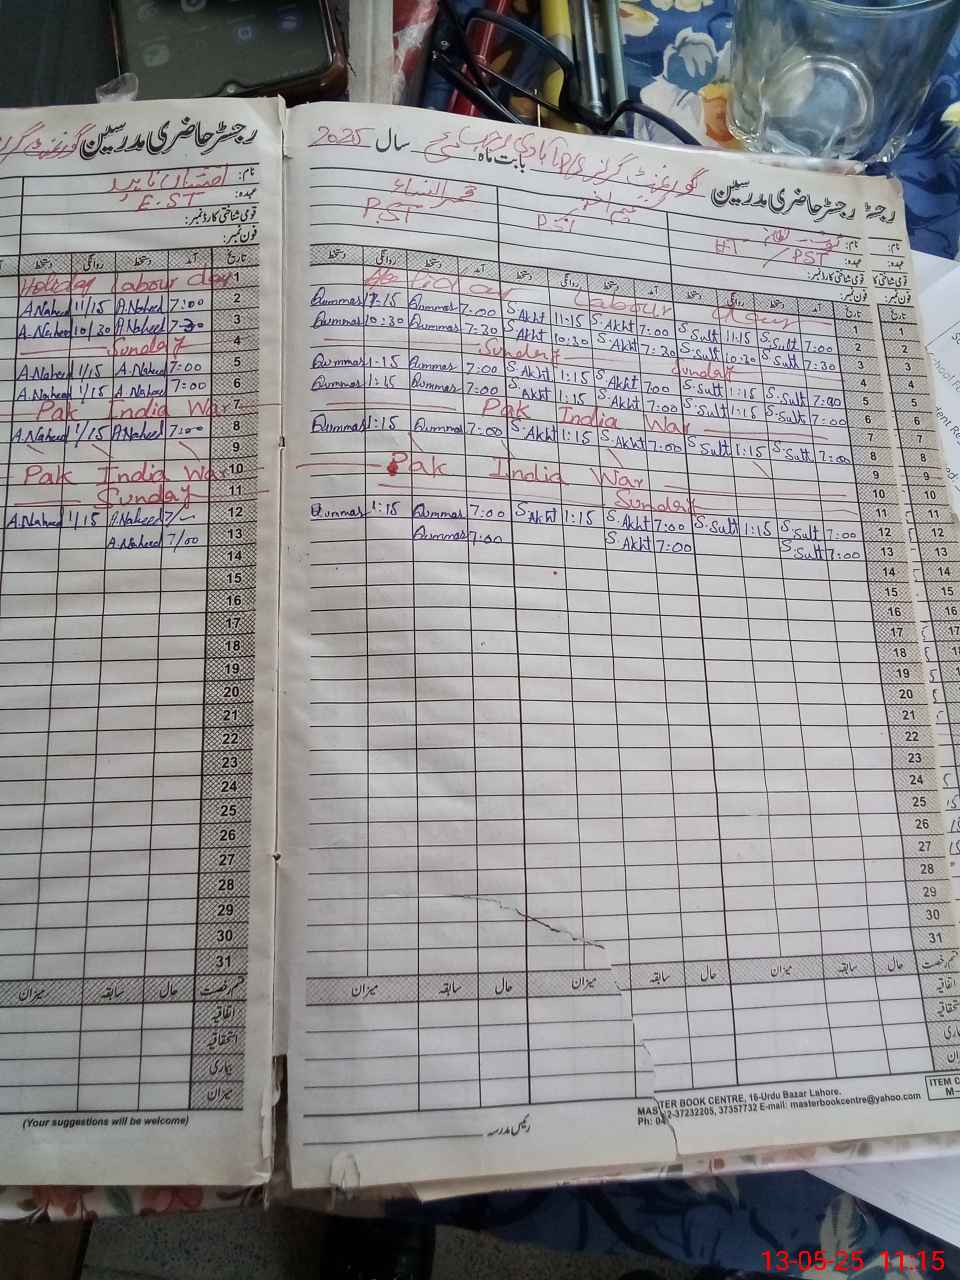 رجسٹر حاضری مدرسین گورنمنٹ گرلز
نام:
عہدہ: E.ST
قومی شناختی کارڈ نمبر:
فون نمبر:
تاریخ آمد دستخط روانگی دستخط
1 Holiday Labour day
2 7:00 A.Naheed 11/15 A.Naheed
3 7:30 A.Naheed 10/30 A.Naheed
4 Sunday
5 7:00 A.Naheed 1/15 A.Naheed
6 7:00 A.Naheed 1/15 A.Naheed
7 Pak India War
8 7:00 A.Naheed 1/15 A.Naheed
9
10 Pak India War
11 Sunday
12 7/— A.Naheed 1/15 A.Naheed
13 7/00 A.Naheed
14
15
16
17
18
19
20
21
22
23
24
25
26
27
28
29
30
31
قسم رخصت حال سابقہ میزان
اتفاقیہ
استحقاقیہ
بیماری
میزان
(Your suggestions will be welcome)
رجسٹر حاضری مدرسین گورنمنٹ گرلز بابت ماہ مئی سال 2025
نام: قمرالنساء
عہدہ: PST PST PST / HT
قومی شناختی کارڈ نمبر:
فون نمبر:
تاریخ آمد دستخط روانگی دستخط آمد دستخط روانگی دستخط آمد دستخط روانگی دستخط
1 Labour day
2 7:00 S.Sult 11:15 S.Sult 7:00 S.Akht 11:15 S.Akht 7:00 Qummas 11:15 Qummas
3 7:30 S.Sult 10:30 S.Sult 7:30 S.Akht 10:30 S.Akht 7:30 Qummas 10:30 Qummas
4 Sunday Sunday
5 7:00 S.Sult 1:15 S.Sult 7:00 S.Akht 1:15 S.Akht 7:00 Qummas 1:15 Qummas
6 7:00 S.Sult 1:15 S.Sult 7:00 S.Akht 1:15 S.Akht 7:00 Qummas 1:15 Qummas
7 Pak India War
8 7:00 S.Sult 1:15 S.Sult 7:00 S.Akht 1:15 S.Akht 7:00 Qummas 1:15 Qummas
9
10 Pak India War
11 Sunday
12 7:00 S.Sult 1:15 S.Sult 7:00 S.Akht 1:15 S.Akht 7:00 Qummas 1:15 Qummas
13 7:00 S.Sult 7:00 S.Akht 7:00 Qummas
14
15
16
17
18
19
20
21
22
23
24
25
26
27
28
29
30
31
قسم رخصت حال سابقہ میزان حال سابقہ میزان حال سابقہ میزان
اتفاقیہ
استحقاقیہ
بیماری
رئیس مدرسہ
MASTER BOOK CENTRE, 16-Urdu Bazar Lahore.
Ph: 042-37232205, 37357732 E-mail: masterbookcentre@yahoo.com
13-05-25 11:15